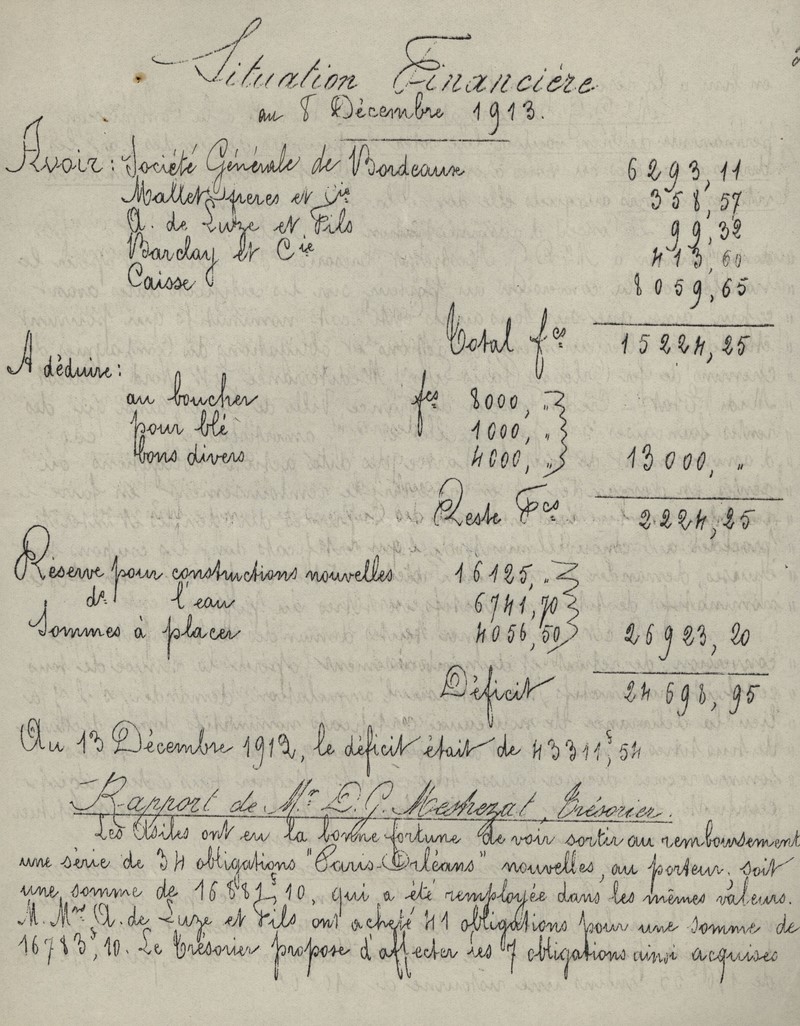 Situation Financière
au 8 Décembre 1913.
Avoir: Société Générale de Bordeaux 6293,11
Mallet frères et Cie 358,57
A. de Luze et Fils 99,32
Barclay et Cie 413,60
Caisse 8059,65
Total fcs 15224,25
A déduire:
au boucher fcs 8000, "
pour blé 1000, "
bons divers 4000, " 13000, "
Reste Fcs 2224,25
Réserve pour constructions nouvelles 16125, "
do l'eau 6741,70
Sommes à placer 4056,50 26923,20
Déficit 24698,95
Au 13 Décembre 1912, le déficit était de 43311f,54
Rapport de Mr D. G. Mestrezat, Trésorier.
Les Asiles ont eu la bonne fortune de voir sortir au remboursement
une série de 34 obligations "Paris-Orléans" nouvelles, au porteur, soit
une somme de 16881f,10, qui a été remployée dans les mêmes valeurs.
M. Mrs A. de Luze et Fils ont acheté 41 obligations pour une somme de
16783f,10. Le Trésorier propose d'affecter les 7 obligations ainsi acquises